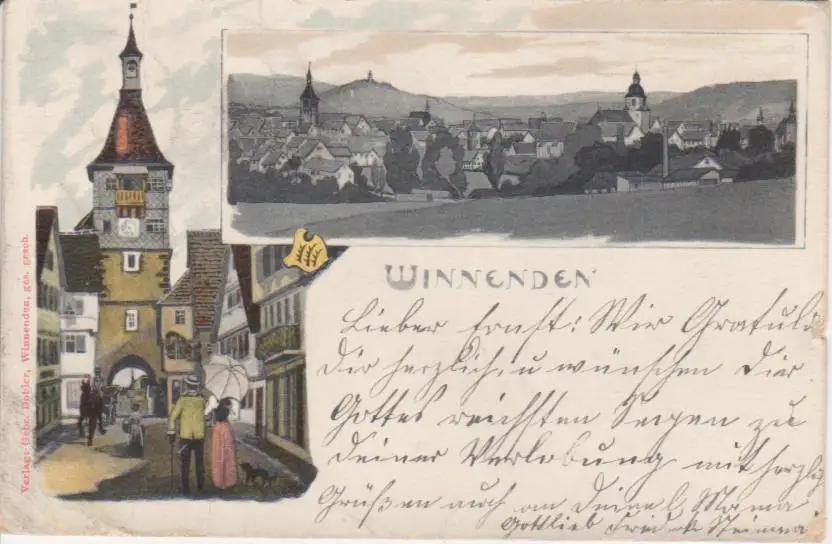 WINNENDEN
Lieber Ernst! Wir Gratuli
Dir herzlich, u wünschen Dir
Gottes reichsten Segen zu
Deiner Verlobung mit herzlig
Grüßen auch an Deine l. Mama
Gottlieb
Verlag: Gebr. Dobler, Winnenden, ges. gesch.